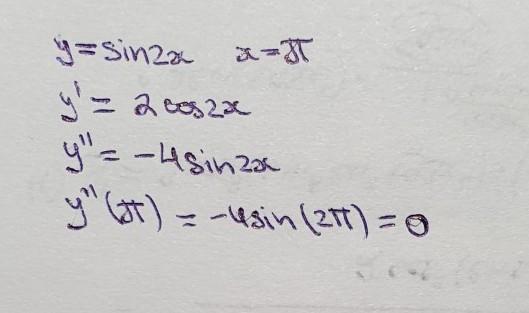 y=sin2x x=π
y'= 2cos2x
y''= -4sin2x
y''(π) = -4sin(2π)=0